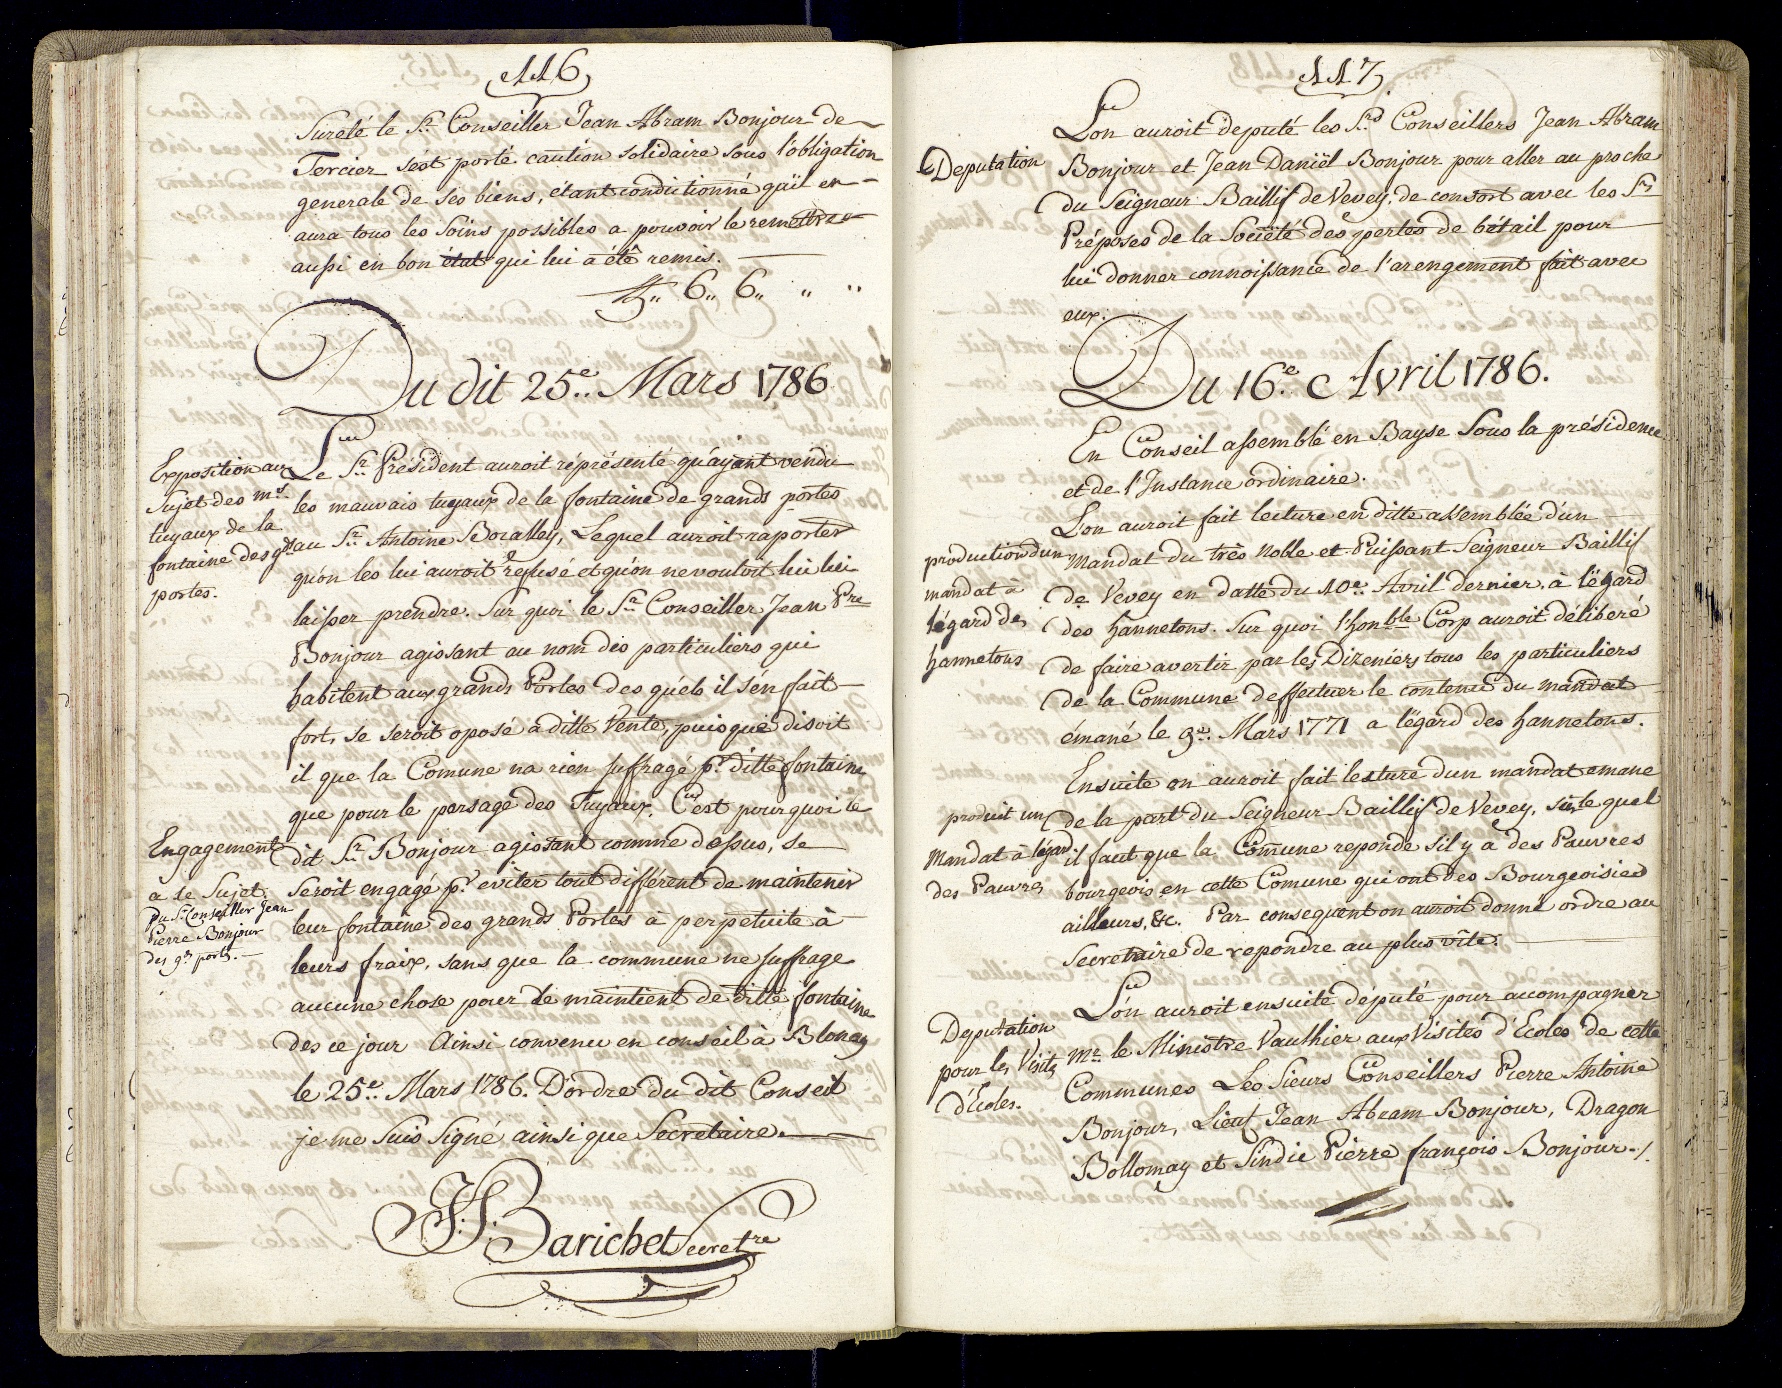 116
Sureté le Sr. Conseiller Jean Abram Bonjour de
Tercier s'est porté caution solidaire sous l'obligation
generale de ses biens, étant condictionné qu'il en
aura tous les soins possibles a pouvoir le remettre
aussi en bon état qui lui à été remis.
6,, 6,, ,, ,,
Du dit 25e. Mars 1786
Exposition au
Sujet des ms.
tuyaux de la
fontaine des gds
portes.
Le Sr. Président auroit réprésenté qu'ayant vendu
les mauvais tuyaux de la fontaine de grands portes
au Sr. Antoine Boralley, Lequel auroit raporter
qu'on les lui auroit refusé et qu'on ne vouloit lui lui
laisser prendre. Sur quoi le Sr. Conseiller Jean Pre
Bonjour agissant au nom des particuliers qui
habitent aux grands Portes des quels il s'en fait
fort, se seroit oposé à ditte Vente, puisque disoit
il que la Comune na rien suffragé pr. ditte fontaine
que pour le persage des Tuyaux. C'est pourquoi le
Engagement
a ce Sujet
du Sr. Conseiller Jean
Pierre Bonjour
des gds ports.
dit Sr. Bonjour agissant comme dessus, se
seroit engagé pr. eviter tout différent de maintenir
leur fontaine des grands Portes à perpetuite à
leurs fraix, sans que la commune ne suffrage
aucune chose pour le maintient de ditte fontaine
des ce jour Ainsi convenu en conseil à Blonay
le 25e. Mars 1786. D'ordre du dit Conseil
je me suis signé ainsi que Secretaire.
Barichet Secretre
117
Deputation
L'on auroit deputé les Srs Conseillers Jean Abram
Bonjour et Jean Daniël Bonjour pour aller au proche
du Seigneur Baillif de Vevey, de consort avec les Srs
Préposes de la Société des pertes de bétail pour
lui donner connoissance de l'arengement fait avec
eux.
Du 16e. Avril 1786.
En Conseil assemblé en Bayse Sous la présidence
et de l'Instance ordinaire.
production d'un
mandat à
l'égard des
hannetons
L'on auroit fait lecture en ditte assemblée d'un
mandat du très noble et Puissant Seigneur Baillif
de Vevey en datte du 10e. Avril dernier, à l'égard
des hannetons. Sur quoi l'honble Corp auroit déliberé
de faire avertir par les Dizeniers tous les particuliers
de la Commune d'effectuer le contenu du mandat
émané le 9e. Mars 1771 a l'égard des hannetons.
produit un
Mandat à l'égard
des Pauvres
Ensuite on auroit fait lecture d'un mandat emane
de la part du Seigneur Baillif de Vevey, sur le quel
il faut que la Comune reponde s'il y à des Pauvres
bourgeois en cette Comune qui ont des Bourgeoisies
ailleurs, &c. Par consequent on auroit donné ordre au
Secretaire de repondre au plus vîte.
Deputation
pour les Visites
d'Ecoles.
L'on auroit ensuite député pour accompagner
Mr. le Ministre Vauthier aux Visites d'Ecoles de cette
Communes Les Sieurs Conseillers Pierre Antoine
Bonjour, Lieut Jean Abram Bonjour, Dragon
Bollomay et Sindic Pierre françois Bonjour./.